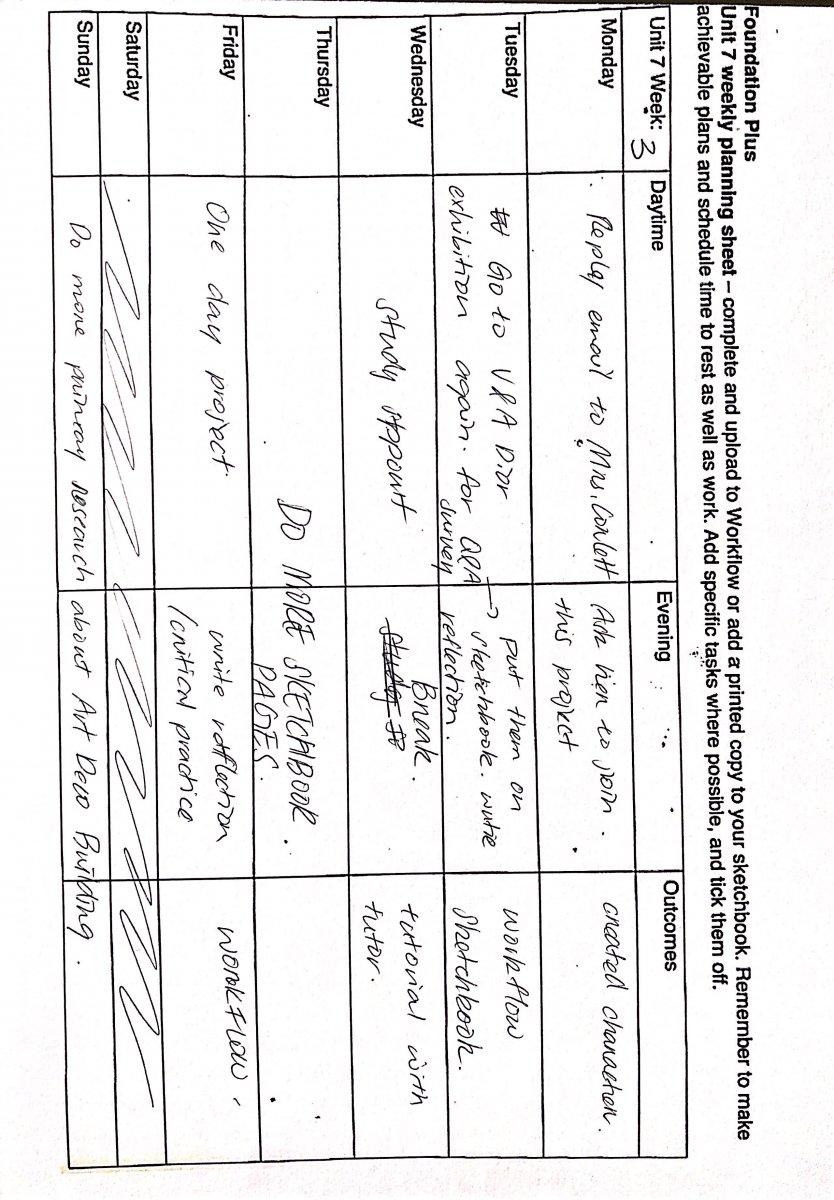 Foundation Plus
Unit 7 weekly planning sheet – complete and upload to Workflow or add a printed copy to your sketchbook. Remember to make
achievable plans and schedule time to rest as well as work. Add specific tasks where possible, and tick them off.
Unit 7 Week: 3
Daytime
Evening
Outcomes
Monday
Replay email to Mrs. Conlett
Ask him to join.
this project
created charaction.
Tuesday
Go to V&A Dior
exhibition again. for Q&A
survey
→ put them on
sketchbook. wutie
reflection.
workflow
Sketchbook.
Wednesday
Study Appount
Break.
tutorial with
tutor.
Thursday
DO MORE SKETCHBOOK
PAGES.
Friday
One day project.
write reflection
/critical practice
WORKFLOW.
Saturday
Sunday
Do more primary research about Art Deco Building.